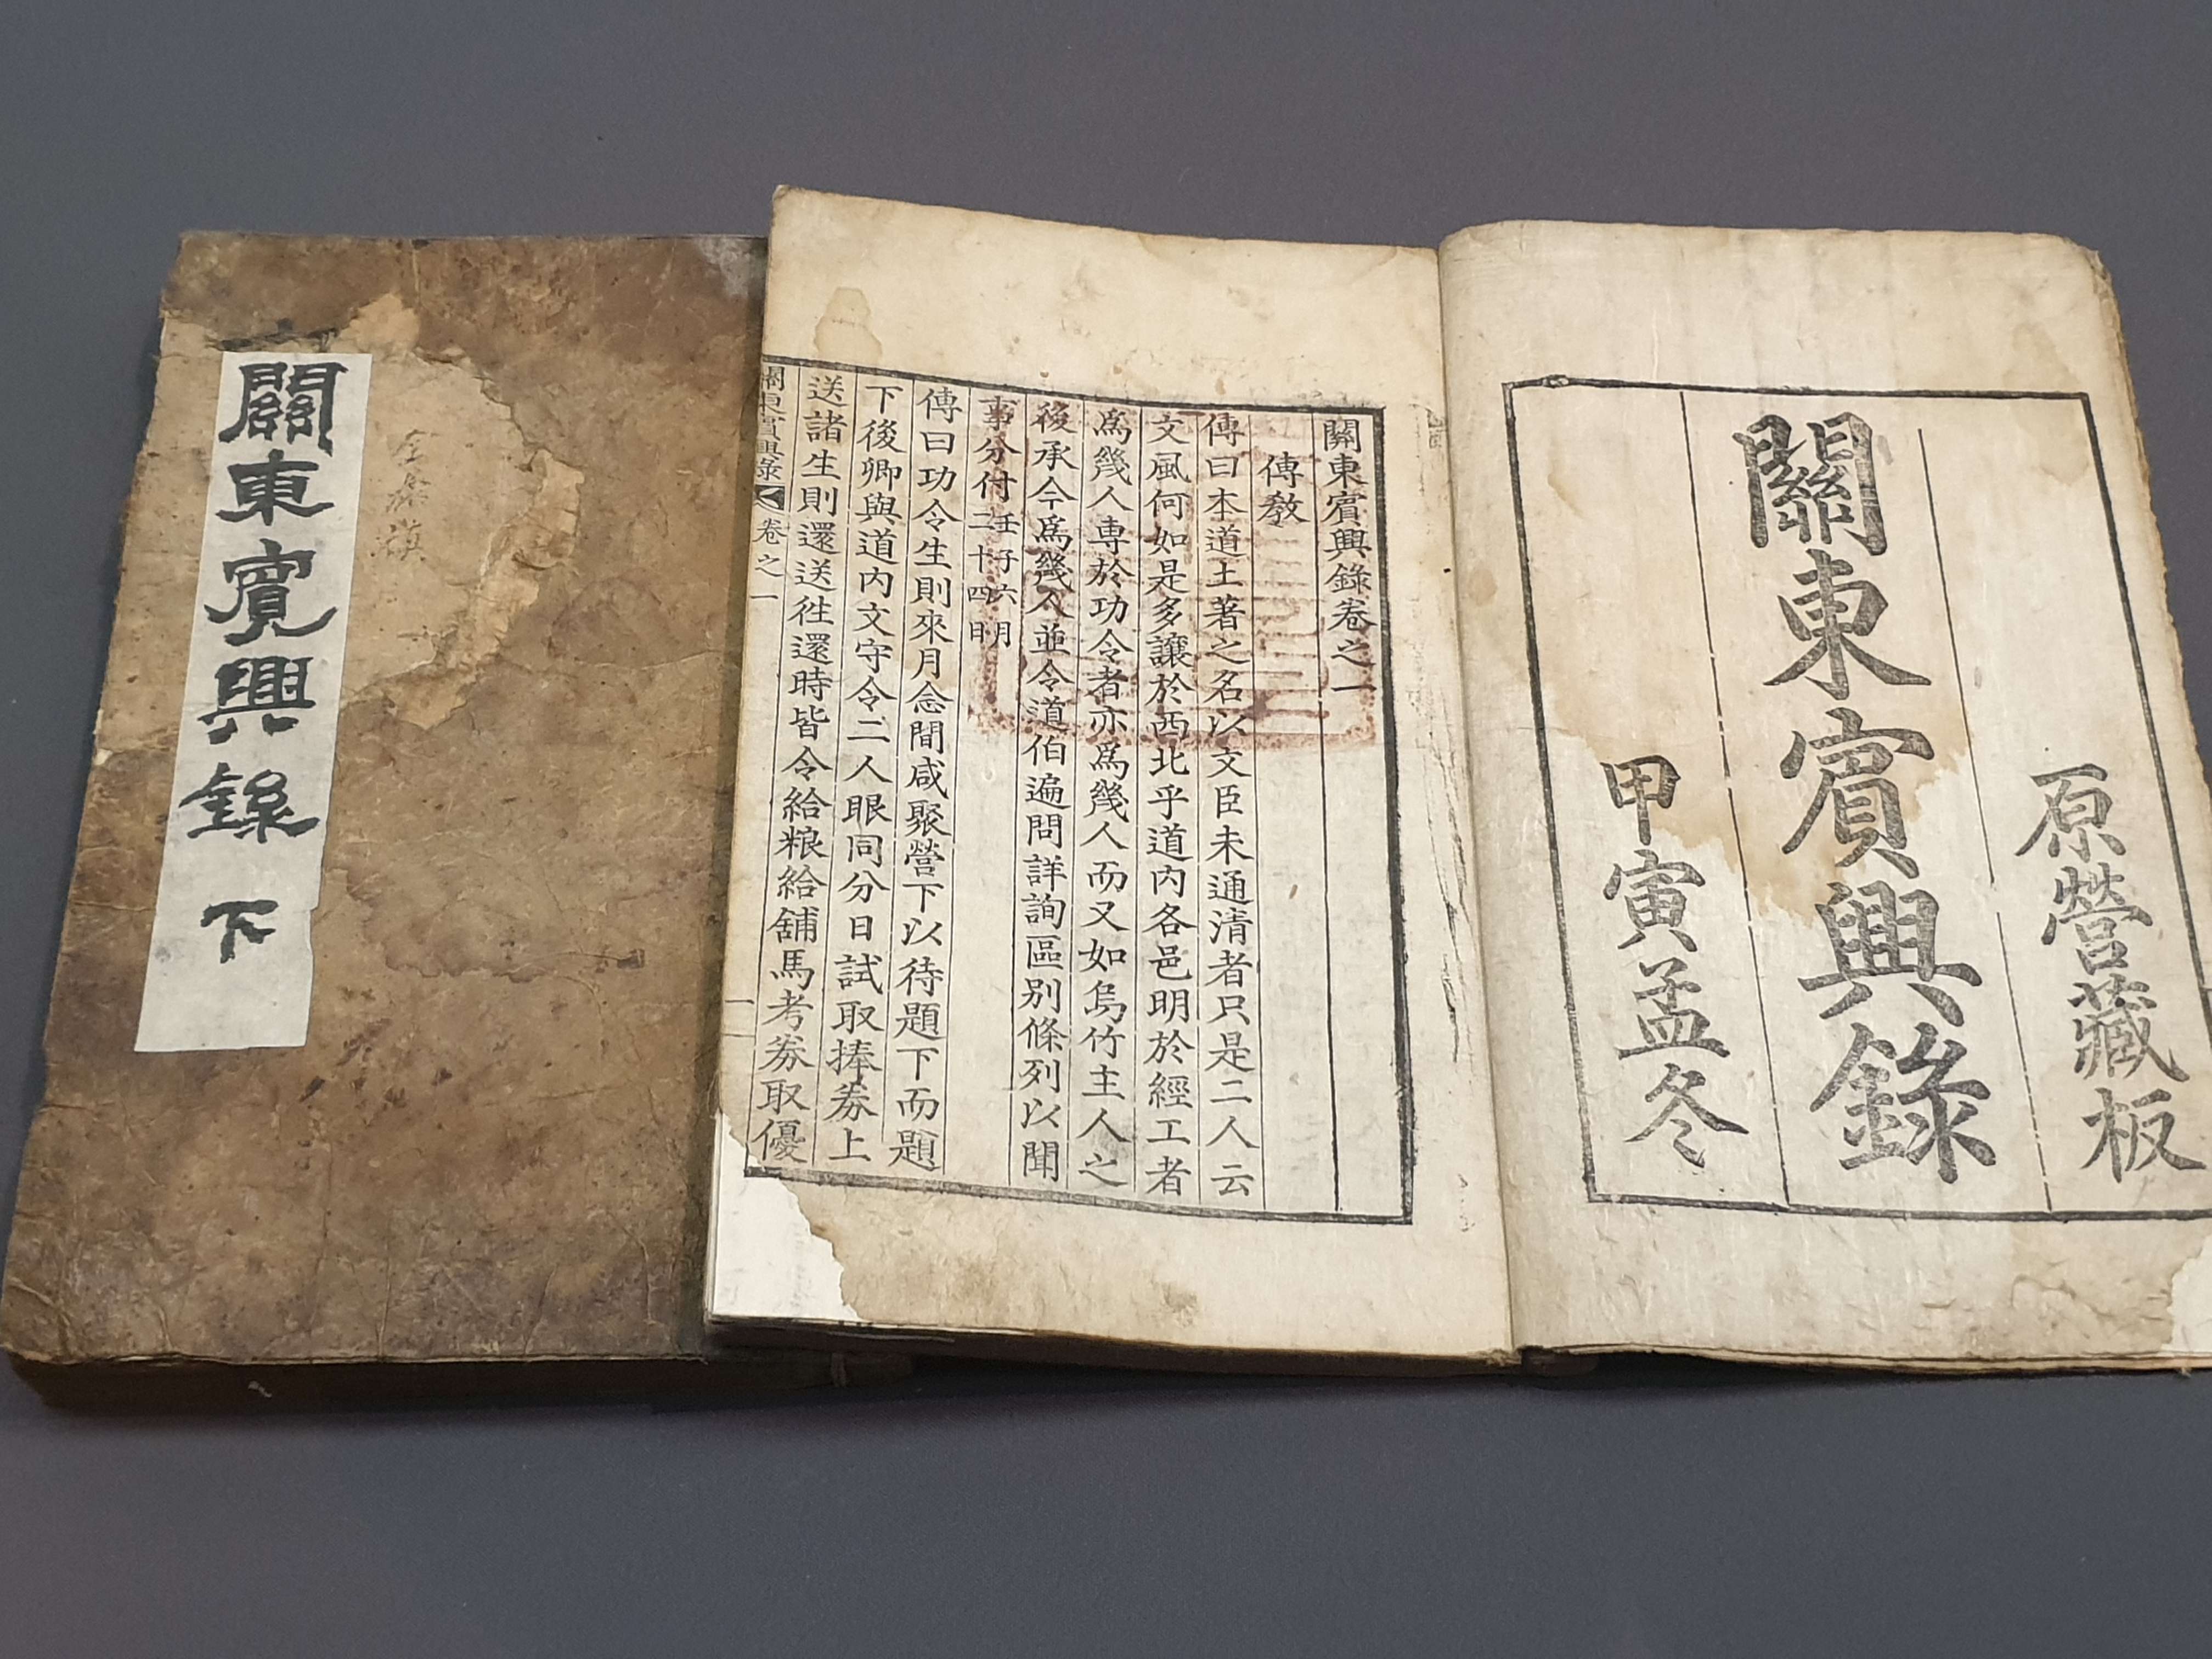 原營藏板
關東賓興錄
甲寅孟冬
關東賓興錄卷之一
傳教
傳曰本道土著之名以文臣未通清者只是二人云
文風何如是多讓於西北乎道內各邑明於經工者
爲幾人專於功令者亦爲幾人而又如烏竹主人之
後承今爲幾人並令道伯遍問詳詢區別條列以聞
事分付壬子六月二十四日
傳曰功令生則來月念間咸聚營下以待題下而題
下後卿與道內文守令二人眼同分日試取捧券上
送諸生則還送徃還時皆令給粮給舖馬考券取優
關東賓興錄 卷之一 一
關東賓興錄 下